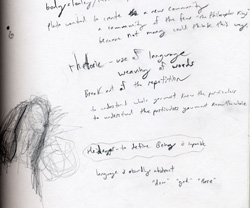 Plato wanted to create a new community
a community of the few "The Philosopher King"
because not many could this way
rhetoric - use of language
weaving of words
Break out of the repetition
to understand whole you must know the particulars
to understand the particulars you must know the whole
Heidegger - to define Being is
language is already abstract
"dear" "god" "here"